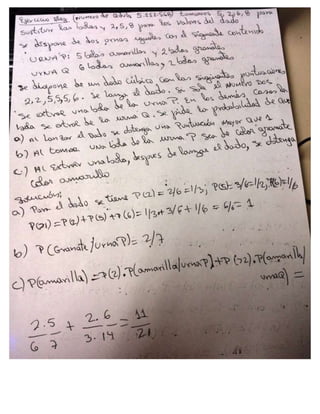 Ejercicio 1 (numero de cédula 5.252.568) tomamos 5, 2, 8 para
sustituir las bolas y 2, 5, 8 para los valores del dado
se dispone de dos urnas iguales con el siguiente contenido
URNA P: 5 bolas amarillas y 2 bolas granates
URNA Q 6 bolas amarillas, 2 bolas granates
Se dispone de un dado cúbico con las siguientes puntuaciones
2, 2, 5, 5, 5, 6. Se lanza el dado. Si sale el número dos,
se extrae una bola de la urna P. En los demás casos la
bola se extrae de la urna Q. Se pide la probabilidad de que
a) Al lanzar el dado se obtenga una puntuación mayor que 1
b) Al tomar una bola de la urna P sea de color granate
c) Al extraer una bola, despues de lanzar el dado, se obtenga
color amarillo
Solución:
a) Para el dado se tiene P(2) = 2/6 = 1/3; P(5) = 3/6 = 1/2; P(6) = 1/6
P(>1) = P(2) + P(5) + P(6) = 1/3 + 3/6 + 1/6 = 6/6 = 1
b) P(Granate/urna P) = 2/7
c) P(amarilla) = P(2).P(amarilla/urna P) + P(>2).P(amarilla/
urna Q) =
2.5/6 7 + 2.6/3.14 = 11/21